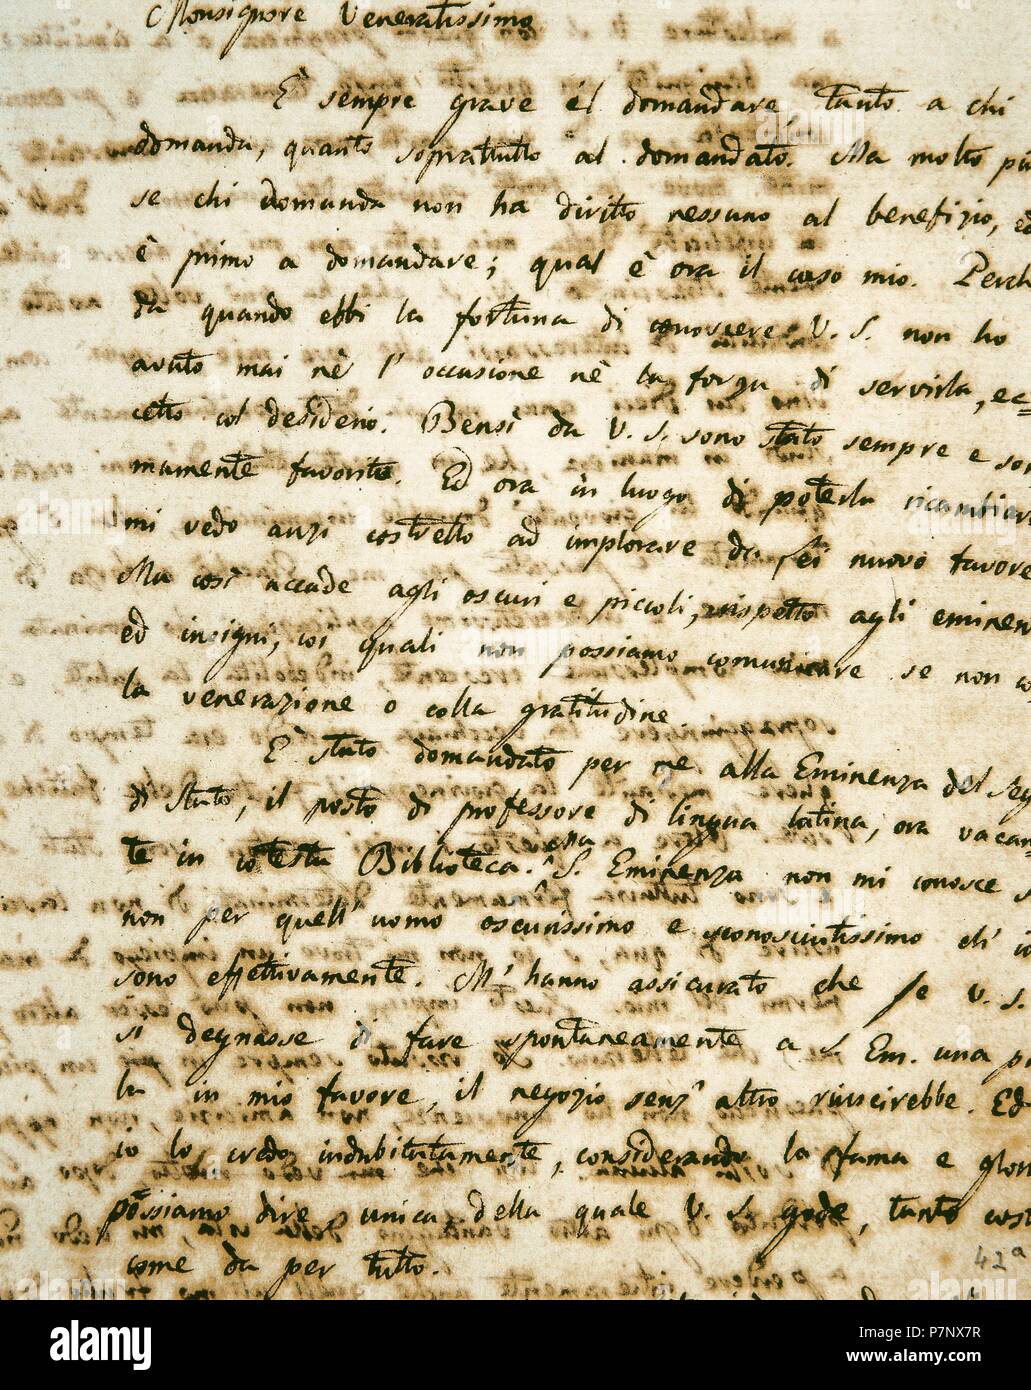 Monsignore Veneratissimo
È sempre grave il domandare, tanto a chi
domanda, quanto soprattutto al domandato. Ma molto più
se chi domanda non ha diritto nessuno al benefizio, ed
è primo a domandare; qual è ora il caso mio. Perch
da quando ebbi la fortuna di conoscere V. S. non ho
avuto mai nè l' occasione nè la forza di servirla, ec=
cetto col desiderio. Bensì da V. S. sono stato sempre e som
mamente favorito. Ed ora in luogo di poterla ricambiar
mi vedo anzi costretto ad implorare da Lei nuovo favore
Ma così accade agli oscuri e piccoli, rispetto agli eminen
ed insigni, coi quali non possiamo comunicare se non co
la venerazione o colla gratitudine.
È stato domandato per me alla Eminenza del Seg
di Stato, il posto di professore di lingua latina, ora vacan=
te in cotesta Biblioteca. S. Eminenza non mi conosce s
non per quell' uomo oscurissimo e sconosciutissimo ch' io
sono effettivamente. M' hanno assicurato che se V. S.
si degnasse di fare spontaneamente a S. Em. una pa
la in mio favore, il negozio senz' altro riuscirebbe. Ed
io lo credo indubitatamente, considerando la fama e glor
possiamo dire unica della quale V. S. gode, tanto cost
come da per tutto.
42a
alamy
alamy
Image ID: P7NX7R
www.alamy.com